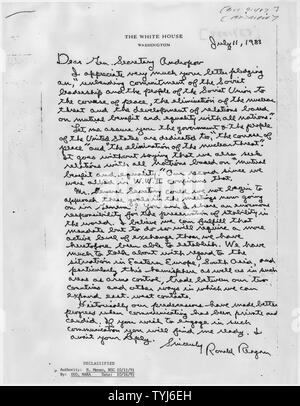 THE WHITE HOUSE
WASHINGTON
July 11, 1983
Dear Gen. Secretary Andropov
I appreciate very much your letter pledging
an "unbending commitment of the Soviet
leadership and the people of the Soviet Union to
the course of peace, the elimination of the nuclear
threat and the development of relations based
on mutual benefit and equality with all nations."
Let me assure you the government & the people
of the United States are dedicated to, "the course of
peace" and "the elimination of the nuclear threat".
It goes without saying that we also seek
relations with all nations based on "mutual
benefit and equality". Our record since we
were allied in W.W.II confirms that.
Mr. General Secretary could we not begin to
approach these goals in the meetings now going
on in Geneva? You and I share an enormous
responsibility for the preservation of stability in
the world. I believe we can fulfill that
mandate but to do so will require a more
active level of exchange than we have
heretofore been able to establish. We have
much to talk about with regard to the
situation in Eastern Europe, South Asia, and
particularly this hemisphere as well as in such
areas as arms control, trade between our two
countries and other ways in which we can
expand east-west contacts.
Historically our predecessors have made better
progress when communicating has been private and
candid. If you wish to engage in such
communication you will find me ready. I
await your reply.
Sincerely
Ronald Reagan
DECLASSIFIED
Authority:
By: NARA Date:
alamy
TYJ6EH